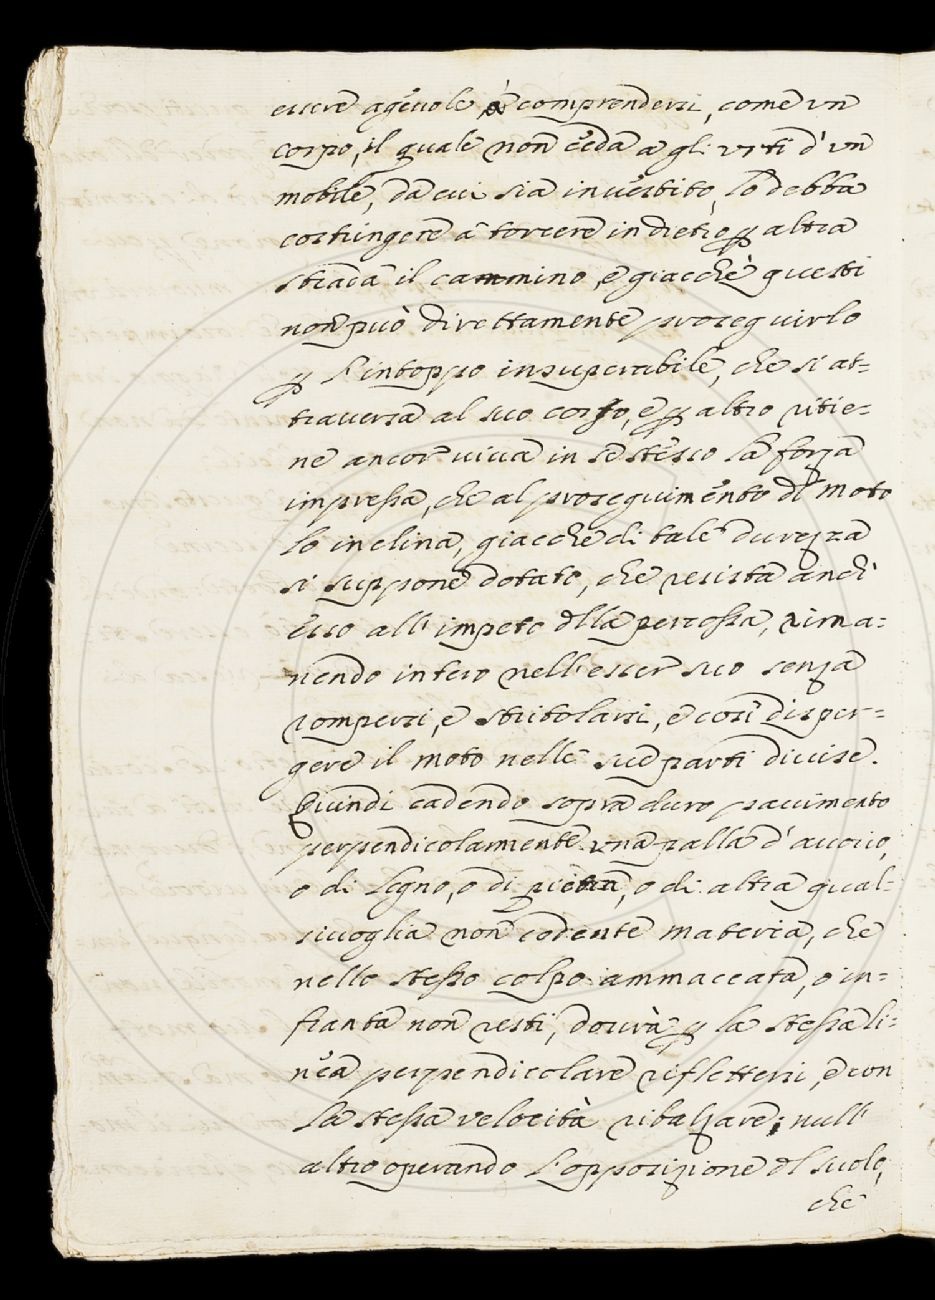 essere ageuole à comprendersi, come vn
corpo, il quale non ceda a gli vrti d'vn
mobile, da cui sia inuestito, lo debba
costringere à torcere indietro p altra
strada il cammino, e giacchè questi
non può direttamente proseguirlo
p l'intoppo insuperabile, che si at=
trauersa al suo corso, e p altro ritie=
ne ancor viua in se stesso la forza
impressa, che al proseguimento dl moto
lo inclina, giacche di tale durezza
si suppone dotato, che resista anch'
esso all'impeto dlla percossa, rima=
nendo intero nell'esser suo senza
rompersi, e stritolarsi, e così disper=
gere il moto nelle sue parti diuise.
Quindi cadendo sopra duro pauimento
perpendicolarmente vna palla d'auorio,
o di legno, o di pietra, o di altra qual=
siuoglia non cedente materia, che
nello stesso colpo ammaccata, o in=
franta non resti, dourà p la stessa li=
nea perpendicolare riflettersi, e con
la stessa velocità ribalzare; null'
altro operando l'opposizione dl suolo,
che